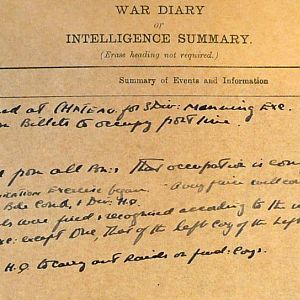 WAR DIARY
or
INTELLIGENCE SUMMARY.
(Erase heading not required.)
Summary of Events and Information
at CHATEAU for 3 Div: Manning Exe.
Billets to occupy post line.
from all Bns: that occupation is
Exercise began.
Bde Comd, & Div: H.Q.
were fired & recognised according to the
except one, that of the left Coy of the Left
H.Q to carry out Raids or